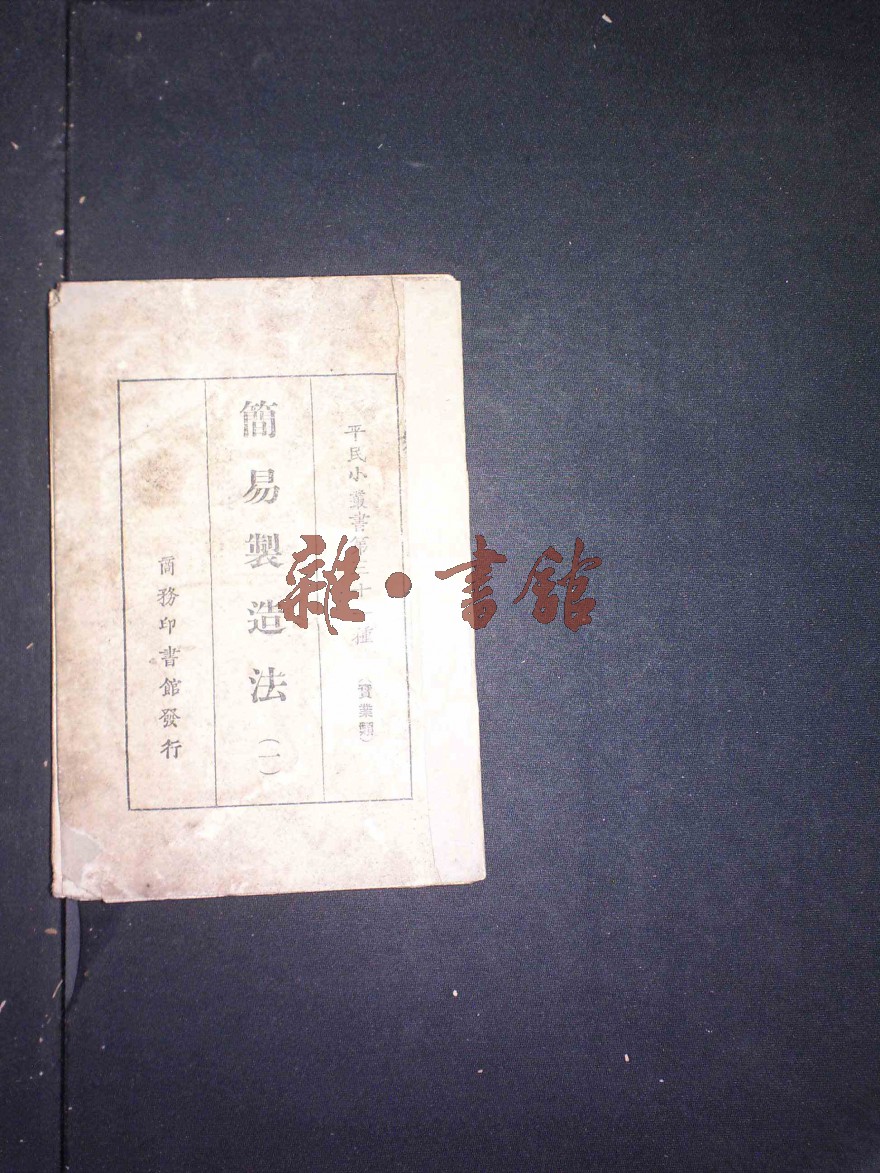 平民小叢書第三十一種 (實業類)
簡易製造法 (一)
商務印書館發行
雜·書館